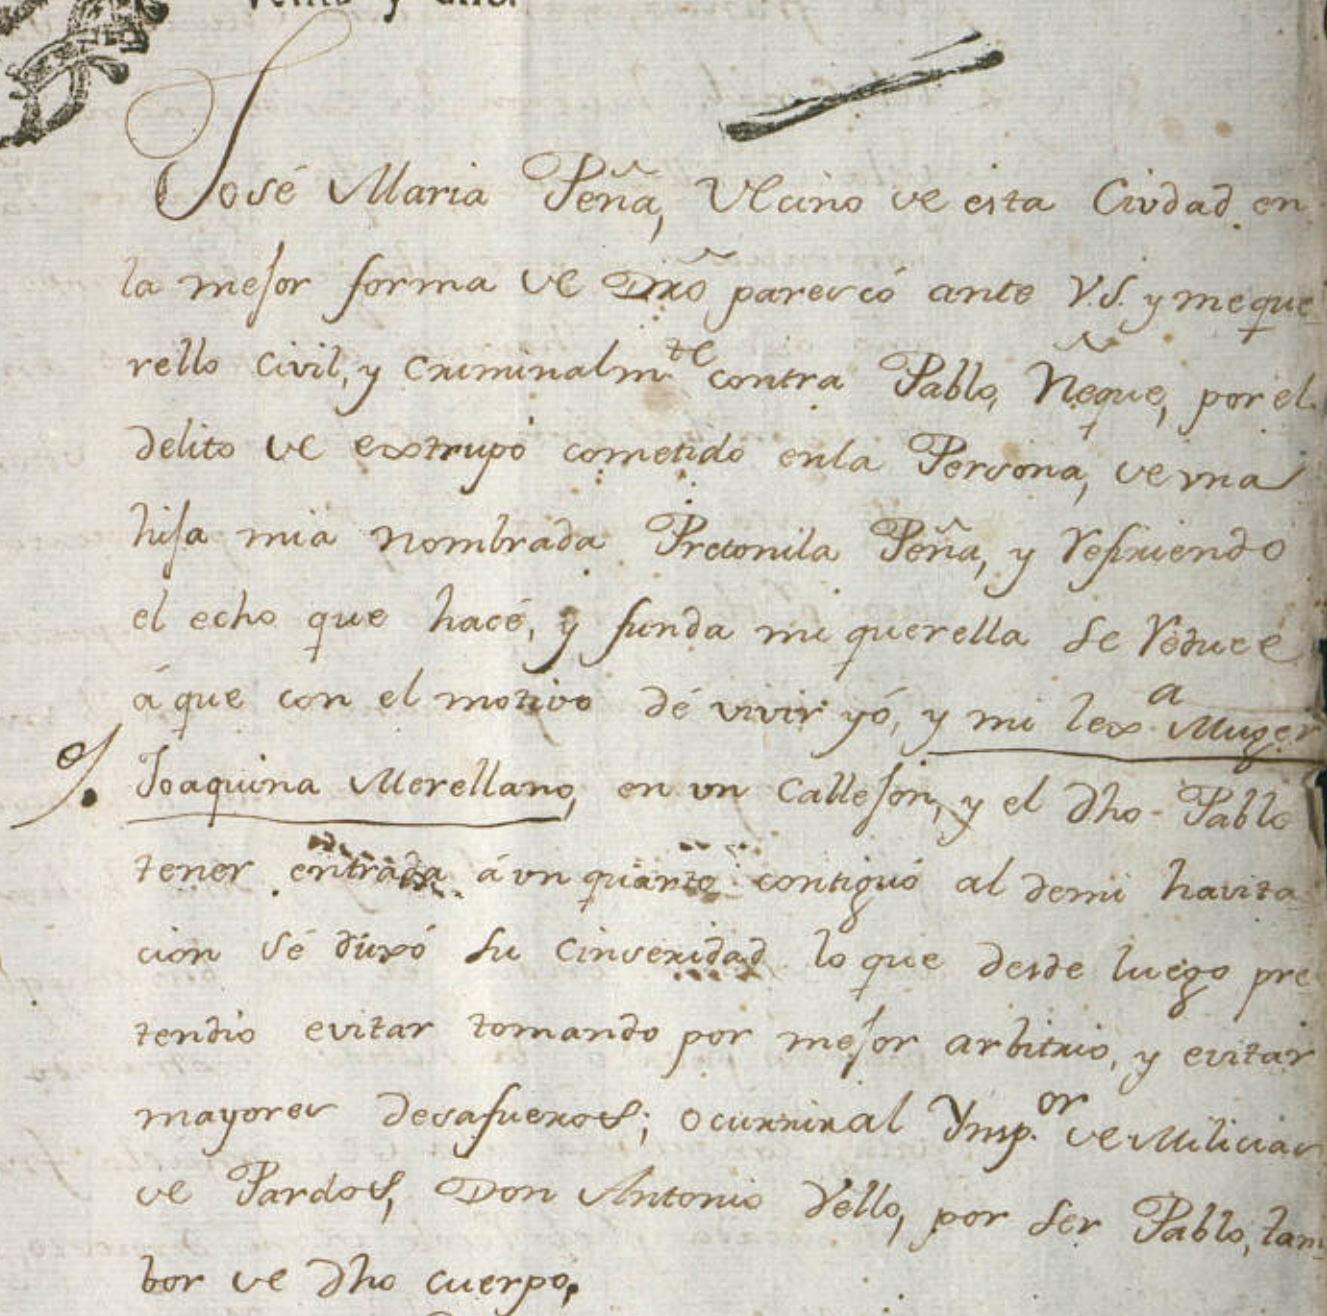 veinte y uno.
José Maria Peña, Vecino de esta Ciudad en
la mejor forma de Dro parescó ante V.S. y meque
rello Civil, y Criminalm.te contra Pablo, Ñeque, por el
delito de extrupo cometido enla Persona, de vna
hija mia nombrada Pretonila Peña, y refiriendo
el echo que hacé, y funda mi querella se reduce
á que con el motivo dé vivir yó, y mi lex.a Muger
Joaquina Merellano, en vn Callejon, y el dho Pablo
tener entrada á vn quarto contiguó al demi havita
cion sé   su Cinseridad lo que desde luego pre
tendio evitar tomando por mejor arbitrio, y evitar
mayores desafueros; ocurrir al Ynsp.or de Milicias
de Pardos, Don Antonio Vello, por ser Pablo, tam
bor de dho cuerpo,